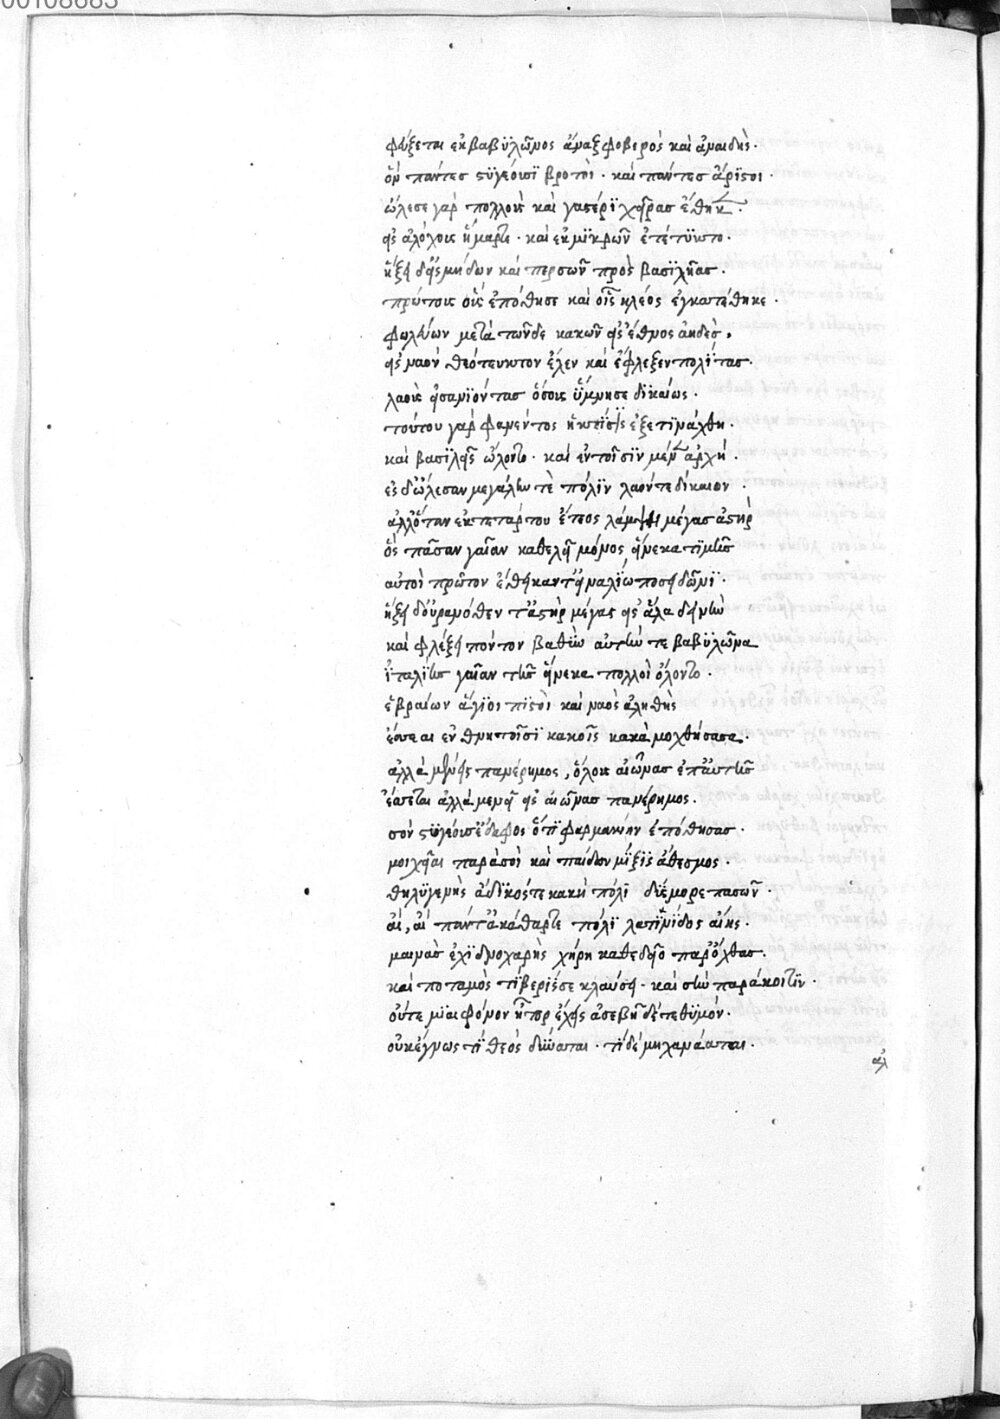 00108683
φεύξεται ἐκ βαβϋλῶνος ἄναξ φοβερὸς καὶ ἀναιδής·
ὃν πάντες στϋγέοισϊ βροτοὶ· καὶ πάντες ἄριϊστοι·
ὤλεσε γὰρ πολλοὺς καὶ γαστέρϊ χεῖρας ἔθηκεν·
εἰς ἀλόχους ἥμαρτε· καὶ ἐκ μϊκρῶν ἐτέτϋκτο·
ἥξει δ' εἰς μήδων καὶ περσῶν πρὸς βασϊλῆας·
πρώτους οὓς ἐπόθησε καὶ οἷς κλέος ἐγκατέθηκε·
φωλεύων μετὰ τῶνδε κακῶν εἰς ἔθνος ἀηδὲς,
εἰς ναὸν θεότευκτον ἕλεν καὶ ἔφλεξεν πολίτας·
λαοὺς εἰσανϊόντας ὅσους ὕμνησε δϊκαίως·
τούτου γὰρ φανέντος ἡ κτίσϊς ἐξετϊνάχθη·
καὶ βασϊλεῖς ὤλοντο· καὶ ἐν τοῖσϊν μένεν ἀρχή·
ἐς δ' ὤλεσαν μεγάλην τὲ πόλϊν λαόν τε δίκαιον·
ἀλλ' ὅταν ἐκ τετάρτου ἔτεος λάμψει μέγας ἀστὴρ
ὃς πᾶσαν γαῖαν καθελεῖ μόνος εἵνεκα τϊμῆς
αὐτοὶ πρῶτον ἔθηκάν τ' εἰναλίῳ ποσειδῶνϊ·
ἥξει δ' οὐρανόθεν τ' ἀστὴρ μέγας εἰς ἅλα δεινὴν
καὶ φλέξει πόντον βαθὺν αὐτήν τε βαβϋλῶνα
ἰταλίης γαῖαν τῆς εἵνεκα πολλοὶ ὄλοντο·
ἑβραίων ἅγϊοι πϊστοὶ καὶ ναὸς ἀληθὴς
ἔσσεαι ἐν θνητοῖσϊ κακοῖς κακὰ μοχθήσασα·
ἀλλὰ μενεῖς πανέρημος, ὅλους αἰῶνας ἐπ' αὐτῆς
ἔσσεται ἀλλὰ μενεῖ εἰς αἰῶνας πανέρημος.
σὸν στϋγέουσ' ἔδαφος ὅτϊ φαρμακείην ἐπόθησας·
μοιχεῖαι παρὰ σοὶ καὶ παίδων μῖξϊς ἄθεσμος·
θηλϋγενὴς ἄδϊκός τε κακὴ πόλϊ δύσμορε πασῶν·
αἲ, αἲ πάντ' ἀκάθαρτε πόλϊ λατϊνίδος αἴης·
μαινὰς ἐχϊδνοχαρὴς χήρη καθεδοῖο παρ' ὄχθας·
καὶ ποταμὸς τίβερίς σε κλαύσει· καὶ σὴν παράκοιτϊν·
οὔτε μϊαιφόνον ἦτορ ἔχεις ἀσεβῆ δέ τε θϋμόν·
οὐκ ἔγνως τϊ θεὸς δύναται· τί δὲ μηχανάαται·
ἀλ